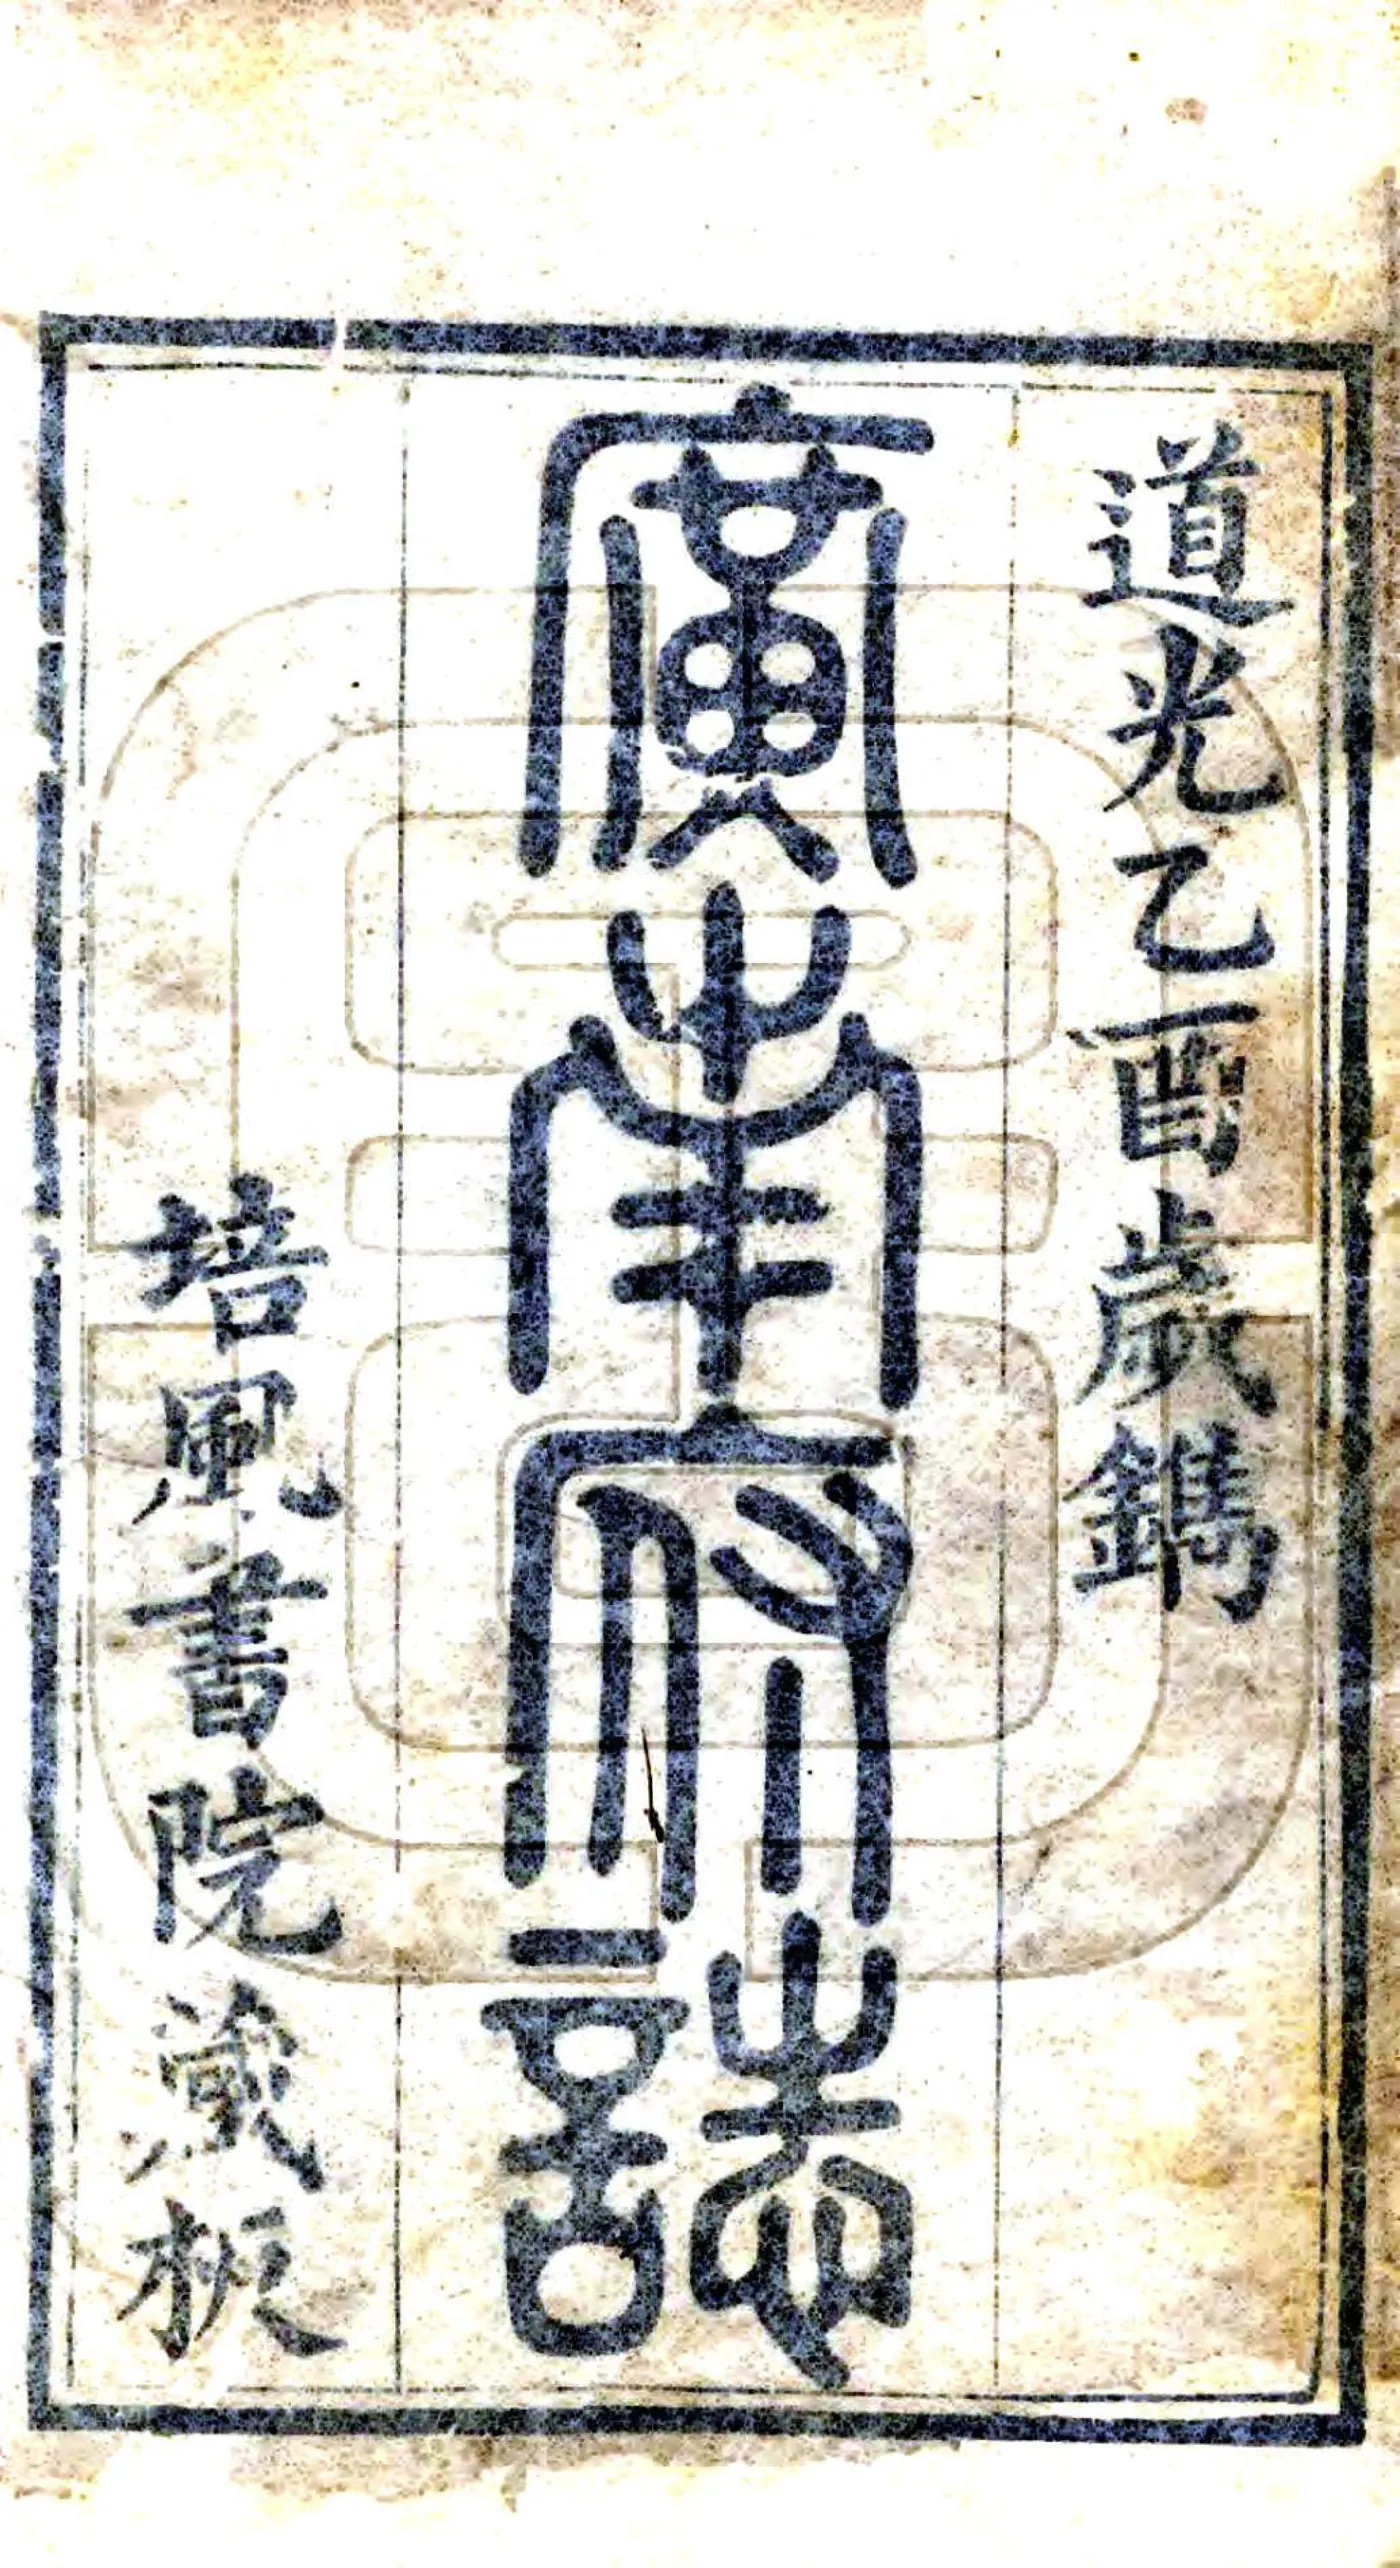 道光乙酉歲鐫
廣南府誌
培風書院藏板